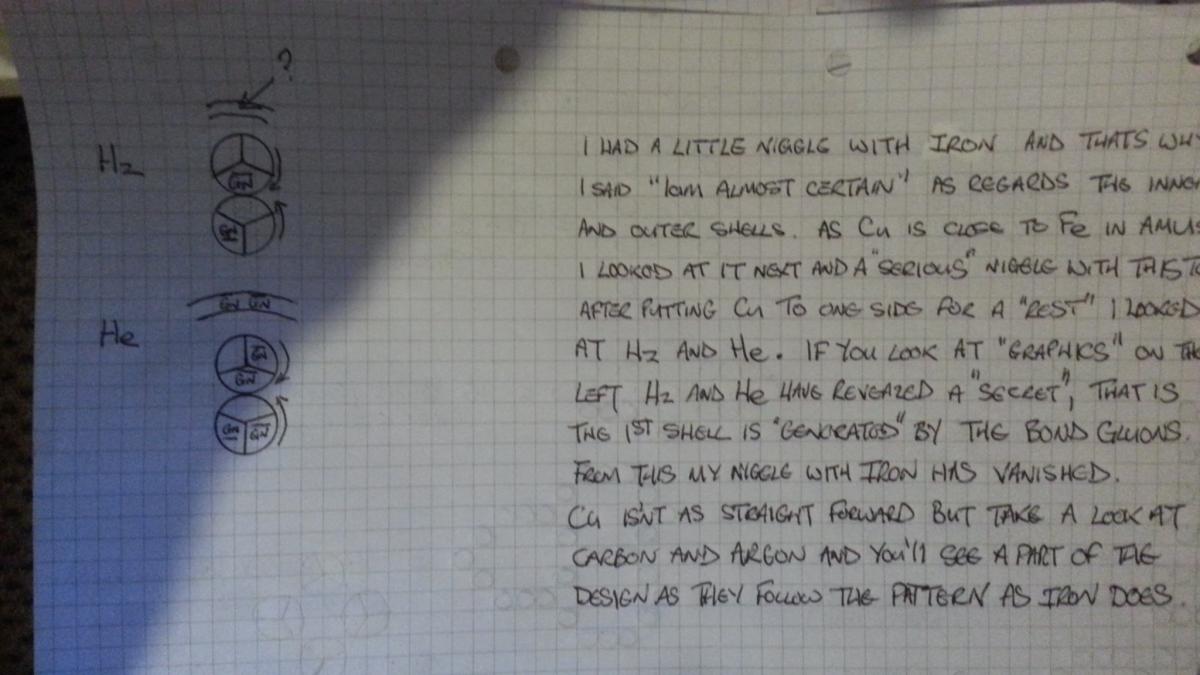 ?
H2
He
I HAD A LITTLE NIGGLE WITH IRON AND THATS WH
I SAID "I am ALMOST CERTAIN" AS REGARDS THE INNER
AND OUTER SHELLS. AS Cu IS CLOSE TO Fe IN AMUS
I LOOKED AT IT NEXT AND A "SERIOUS" NIGGLE WITH THIS TO
AFTER PUTTING Cu TO ONE SIDE FOR A "REST" I LOOKED
AT H2 AND He. IF YOU LOOK AT "GRAPHICS" ON THE
LEFT H2 AND He HAVE REVEALED A "SECRET", THAT IS
THE 1ST SHELL IS "GENERATED" BY THE BOND GLUONS.
FROM THIS MY NIGGLE WITH IRON HAS VANISHED.
Cu ISN'T AS STRAIGHT FORWARD BUT TAKE A LOOK AT
CARBON AND ARGON AND YOU'll SEE A PART OF THE
DESIGN AS THEY FOLLOW THE PATTERN AS IRON DOES.